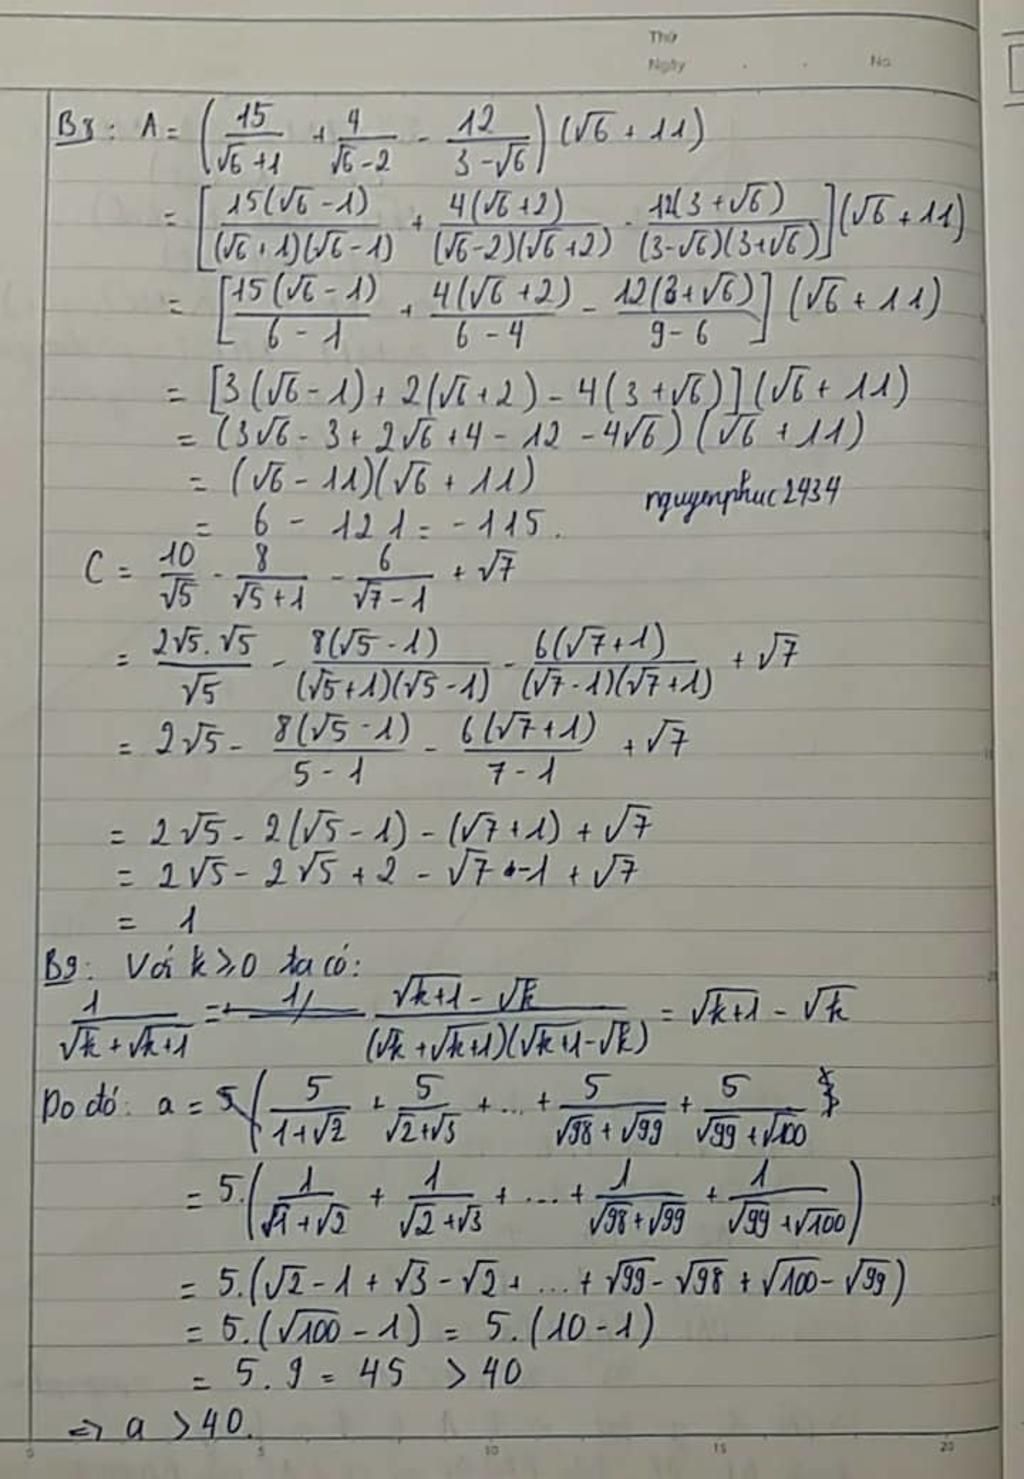 Thứ
Ngày . . No
B8: A = (15/(√6+1) + 4/(√6-2) - 12/(3-√6)) (√6 + 11)
= [15(√6-1)/((√6+1)(√6-1)) + 4(√6+2)/((√6-2)(√6+2)) - 12(3+√6)/((3-√6)(3+√6))] (√6 + 11)
= [15(√6-1)/(6-1) + 4(√6+2)/(6-4) - 12(3+√6)/(9-6)] (√6 + 11)
= [3(√6-1) + 2(√6+2) - 4(3+√6)] (√6 + 11)
= (3√6 - 3 + 2√6 + 4 - 12 - 4√6) (√6 + 11)
= (√6 - 11)(√6 + 11)
nguyenphuc2434
= 6 - 121 = -115.
C = 10/√5 - 8/(√5+1) - 6/(√7-1) + √7
= 2√5.√5/√5 - 8(√5-1)/((√5+1)(√5-1)) - 6(√7+1)/((√7-1)(√7+1)) + √7
= 2√5 - 8(√5-1)/(5-1) - 6(√7+1)/(7-1) + √7
= 2√5 - 2(√5-1) - (√7+1) + √7
= 2√5 - 2√5 + 2 - √7 - 1 + √7
= 1
B9: Với k ≥ 0 ta có:
1/(√k+√k+1) = (√k+1 - √k)/((√k+√k+1)(√k+1-√k)) = √k+1 - √k
Do đó: a = 5/(1+√2) + 5/(√2+√3) + ... + 5/(√98+√99) + 5/(√99+√100)
= 5.(1/(√1+√2) + 1/(√2+√3) + ... + 1/(√98+√99) + 1/(√99+√100))
= 5.(√2 - 1 + √3 - √2 + ... + √99 - √98 + √100 - √99)
= 5.(√100 - 1) = 5.(10-1)
= 5.9 = 45 > 40
=> a > 40.
0 5 10 15 20